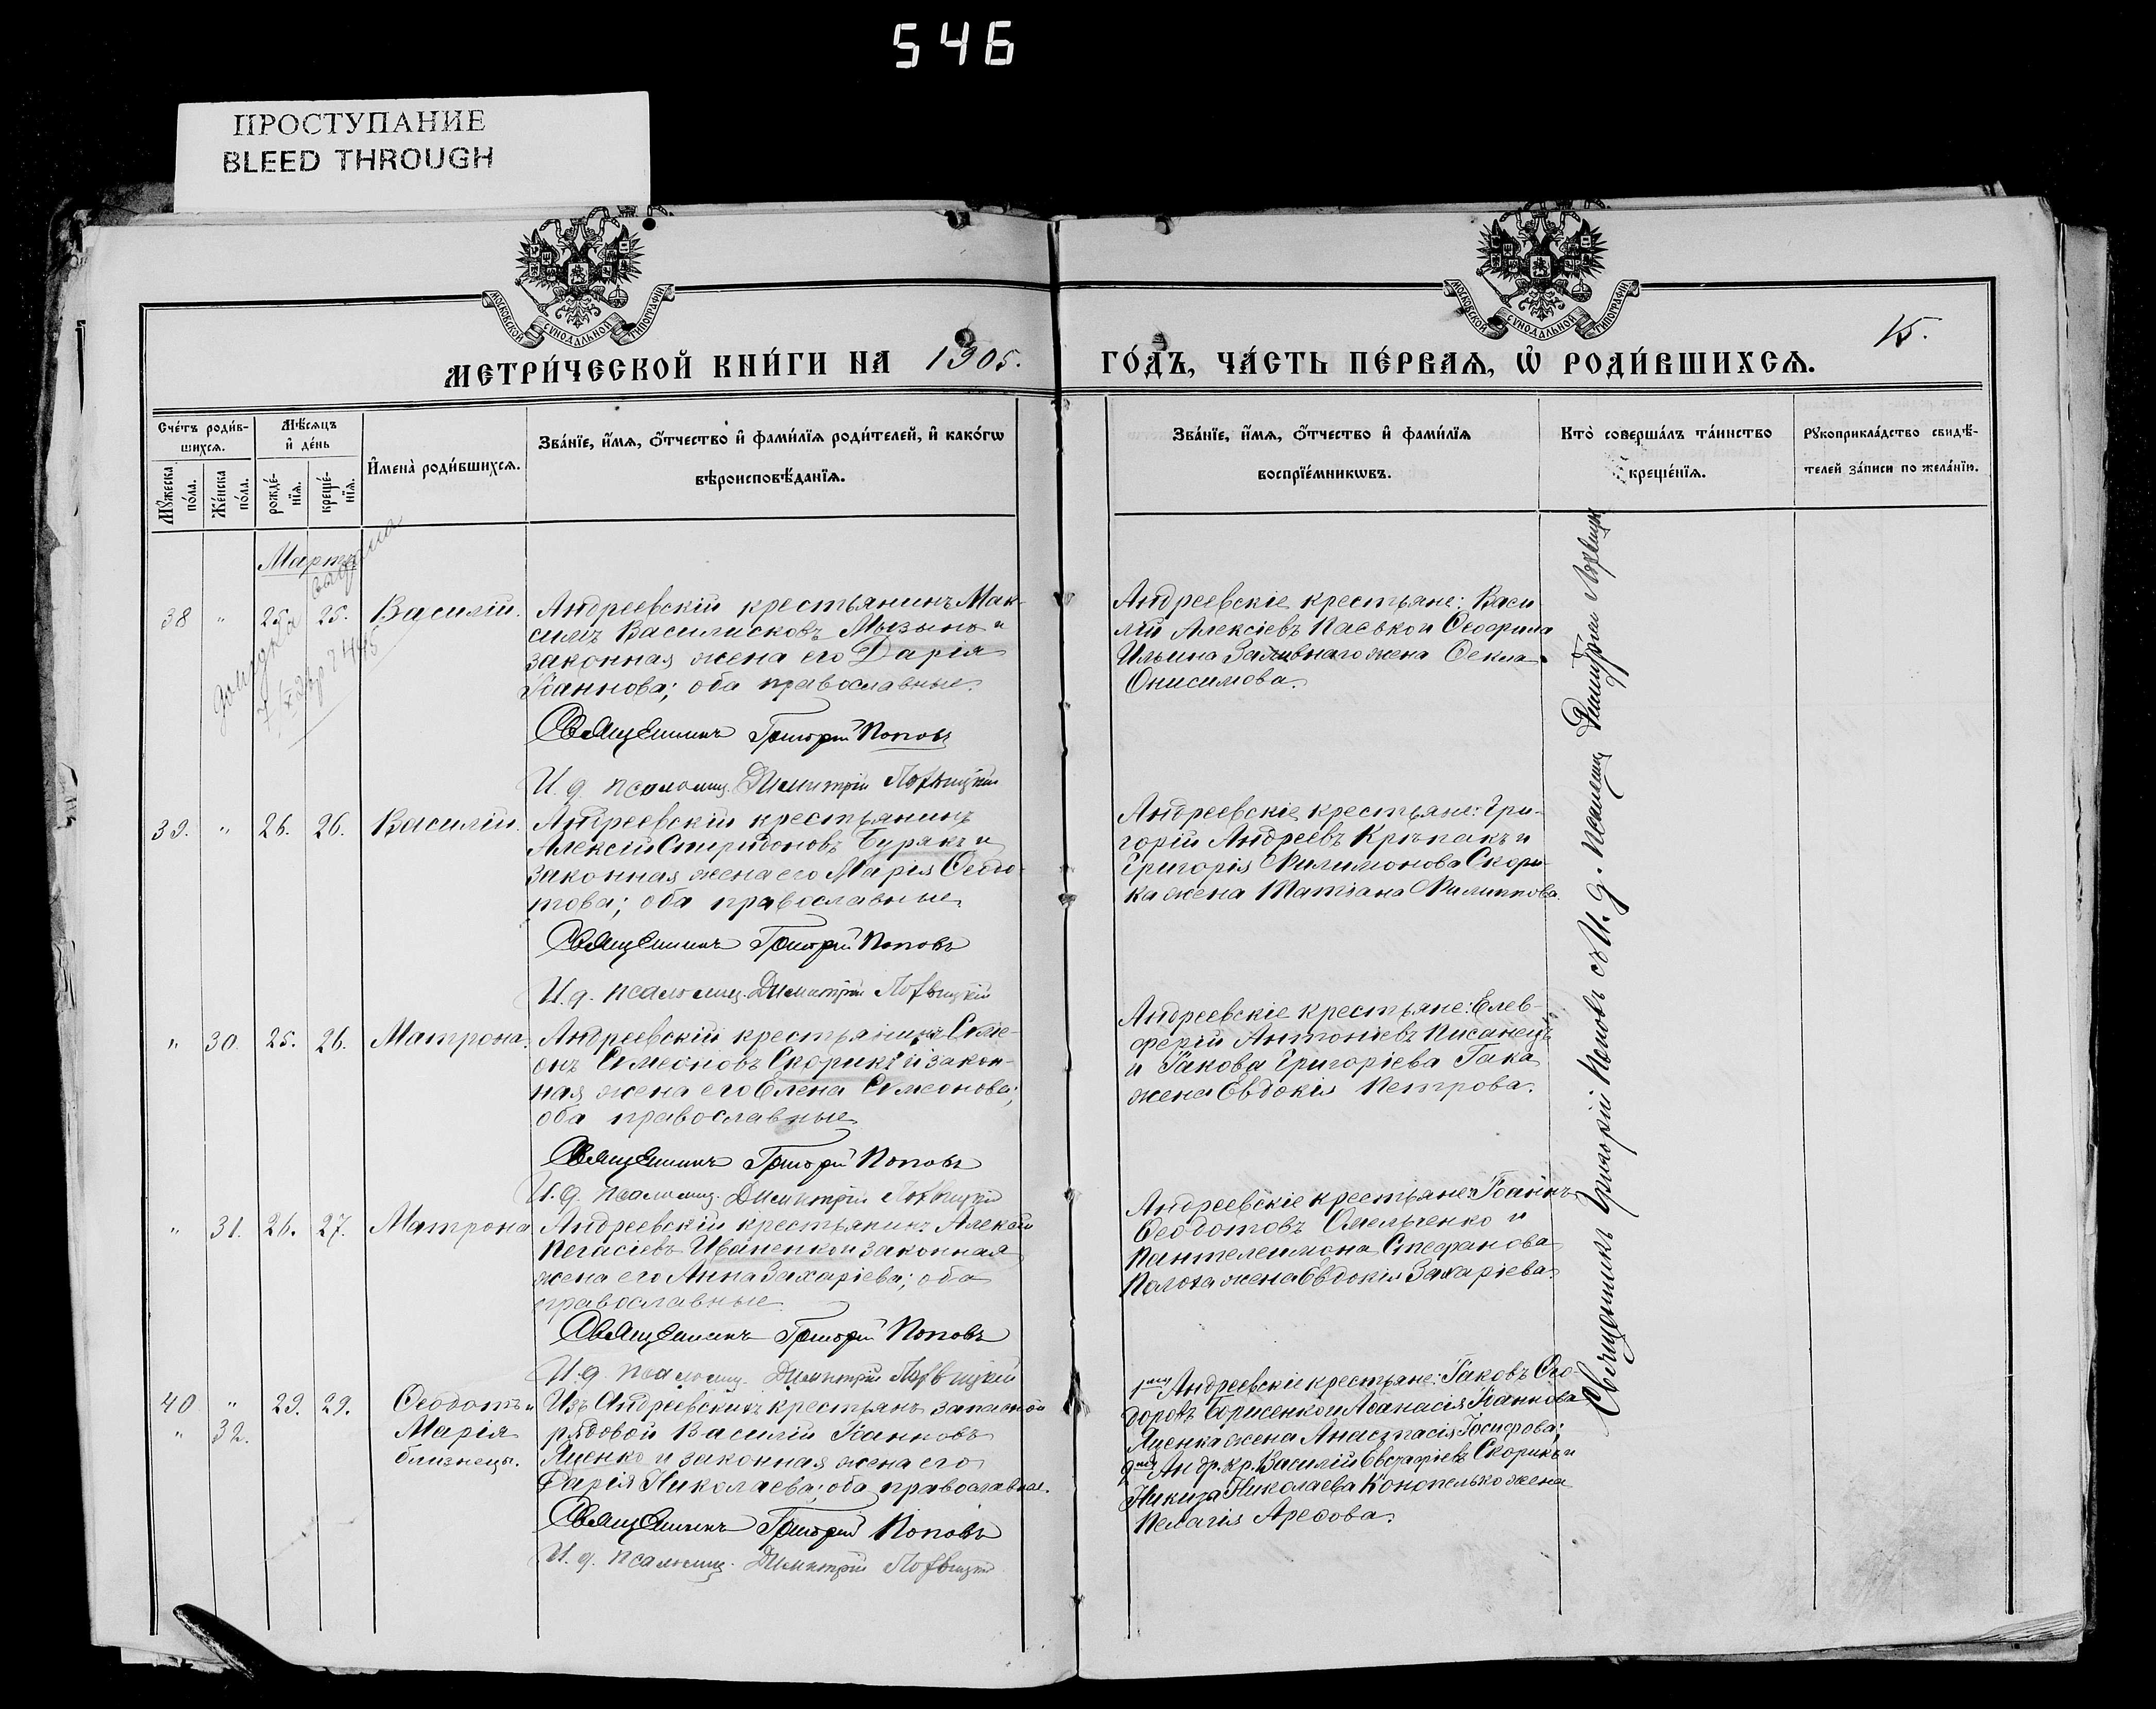 546
ПРОСТУПАНИЕ
BLEED THROUGH
МОСКОВСКОЙ СѴНОДАЛЬНОЙ ТИПОГРАФІИ
МОСКОВСКОЙ СѴНОДАЛЬНОЙ ТИПОГРАФІИ
15.
МЕТРИ́ЧЕСКОЙ КНИ́ГИ НА 1905. ГО́ДЪ, ЧА́СТЬ ПЕ́РВАѦ, Ѡ҆ РОДИ́ВШИХСѦ.
Сче́тъ роди́в-
шихсѧ.
Мꙋжеска по́ла.
Же́нска по́ла.
Мѣ́сѧцъ
и҆ де́нь
рожде́-
нїѧ.
креще́-
нїѧ.
И҆мена̀ роди́вшихсѧ.
Зва́нїе, и҆́мѧ, ѻ҆́тчество и҆ фами́лїѧ роди́телей, и҆ како́гѡ
вѣроисповѣ́данїѧ.
Зва́нїе, и҆́мѧ, ѻ҆́тчество и҆ фами́лїѧ
воспрїе́мникѡвъ.
Кто̀ соверша́лъ та́инство
креще́нїѧ.
Рꙋкоприкла́дство свидѣ́-
телей за́писи по жела́нїю.
Мартъ
38 " 25. 25. Василій.
Андреевскій крестьянинъ Мак-
симъ Василисковъ Мызынъ и
законная жена его Дарія
Іоаннова; оба православные.
Священникъ Григорій Поповъ
И. д. псаломщ. Димитрій
Андреевскіе крестьяне: Васи-
лій Алексіевъ Паськои Ѳеофила
Ильина Заливнаго жена Ѳекла
Онисимова.
39. " 26. 26. Василій.
Андреевскій крестьянинъ
Алексій Спиридоновъ Бурякъ и
законная жена его Марія Ѳеодо-
това; оба православные.
Священникъ Григорій Поповъ
И. д. псаломщ. Димитрій
Андреевскіе крестьяне: Гри-
горій Андреевъ Крѣпакъ и
Григорія Филимонова Скори-
ка жена Татіана Филиппова.
" 30. 25. 26. Матрона.
Андреевскій крестьянинъ Симе-
онъ Симеоновъ Скорикъ и закон-
ная жена его Елена Симеонова;
оба православные
Священникъ Григорій Поповъ
И. д. псаломщ. Димитрій
Андреевскіе крестьяне: Елев-
ферій Антоніевъ Писанецъ
и Іакова Григоріева Гака
жена Евдокія Петрова.
" 31. 26. 27. Матрона
Андреевскій крестьянинъ Алексій
Пегасіевъ Иваненкои законная
жена его Анна Захаріева; оба
православные
Священникъ Григорій Поповъ
И. д. псаломщ. Димитрій
Андреевскіе крестьяне: Іоаннъ
Ѳеодотовъ Омельченко и
Пантелеимона Стефанова
жена Евдокія Захаріева.
40 " 29. 29. Ѳеодотъ и
" 32. Марія
близнецы.
Изъ Андреевскихъ крестьянъ запасной
рядовой Василій Іоанновъ
Яценко и законная жена его
Дарія Николаева; оба православные.
Священникъ Григорій Поповъ
И. д. псаломщ. Димитрій
Андреевскіе крестьяне: Іаковъ Ѳео-
доровъ Борисенкои Аѳанасія Іоаннова
Яценка жена Анастасія Іосифова;
Андр. кр. Василій Евстафіевъ Скорикъ и
Никиты Николаева Конопелько жена
Пелагія Арефова.
Священникъ Григорій Поповъ съ И. д. псаломщ Димитріи